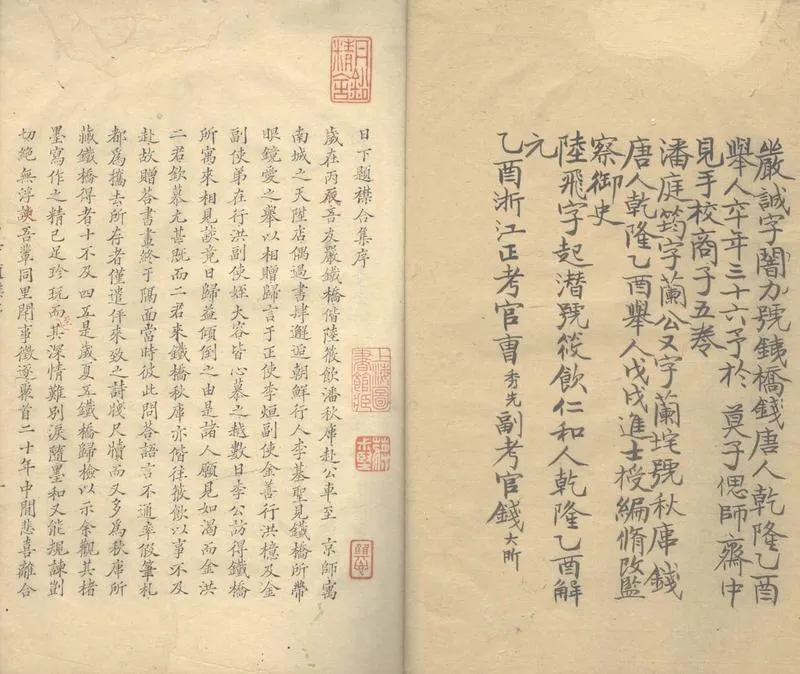 嚴誠字闇力號銕橋錢唐人乾隆乙酉
舉人卒年三十六予於 莫子偲師齋中
見手校商子五卷
潘庭筠字蘭公又字蘭垞號秋庫錢
唐人乾隆乙酉舉人戊戌進士授編脩改監
察御史
陸飛字起潛號筱飲仁和人乾隆乙酉解
元
乙酉浙江正考官曹秀先副考官錢大昕
上海圖書館藏
日下題襟合集序
歲在丙辰吾友嚴鐵橋偕陸筱飲潘秋庫赴公車至 京師寓
南城之天陞店偶過書肆邂逅朝鮮行人李基聖見鐵橋所帶
眼鏡愛之舉以相贈歸言于正使李烜副使金善行洪檍及金
副使弟在行洪副使姪大容皆心慕之越數日李公訪得鐵橋
所寓來相見談竟日歸益傾倒之由是諸人願見如渴而金洪
二君欽慕尤甚既而二君來鐵橋秋庫亦偕往筱飲以事不及
赴故贈荅書畫終于隔面當時彼此問荅語言不通率假筆札
都為攜去所存者僅遣伻來致之詩牋尺牘而又多為秋庫所
藏鐵橋得者十不及四五是歲夏五鐵橋歸檢以示余觀其楮
墨寫作之精已足珍玩而其深情難別淚隨墨和又能規諫剴
切絕無浮諛吾輩同里閈事徵逐聚首二十年中間悲喜離合